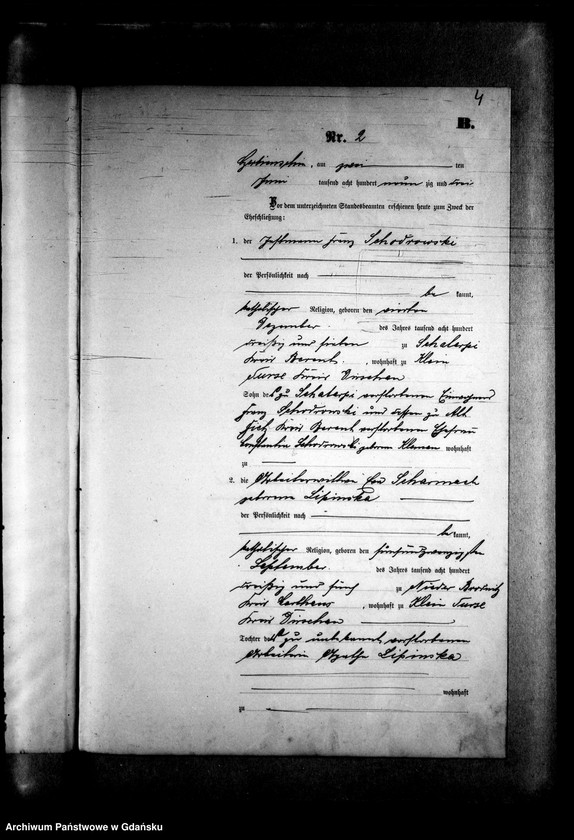 4
B.
Nr. 2
am zwei ten
Juni tausend acht hundert neun zig und drei
Vor dem unterzeichneten Standesbeamten erschienen heute zum Zweck der
Eheschließung:
1. der Franz Schodrowski
der Persönlichkeit nach
be kannt,
katholischer Religion, geboren den vierten
Dezember des Jahres tausend acht hundert
dreißig und sieben zu Schatarpi
Kreis Berent, wohnhaft zu Klein
Turse Kreis Dirschau
Sohn des zu Schatarpi verstorbenen Einwohners
Franz Schodrowski und dessen zu Alt
Kreis Berent verstorbenen Ehefrau
Constantia Schodrowski geborene wohnhaft
zu
2. die Arbeiterwittwe Eva Scharmach
geborene Lipinska
der Persönlichkeit nach
be kannt,
katholischer Religion, geboren den fünfundzwanzig ten
September des Jahres tausend acht hundert
dreißig und fünf zu Nieder
Kreis Carthaus, wohnhaft zu Klein Turse
Kreis Dirschau
Tochter der zu unbekannt verstorbenen
Arbeiterin Agathe Lipinska
wohnhaft
zu
Archiwum Państwowe w Gdańsku